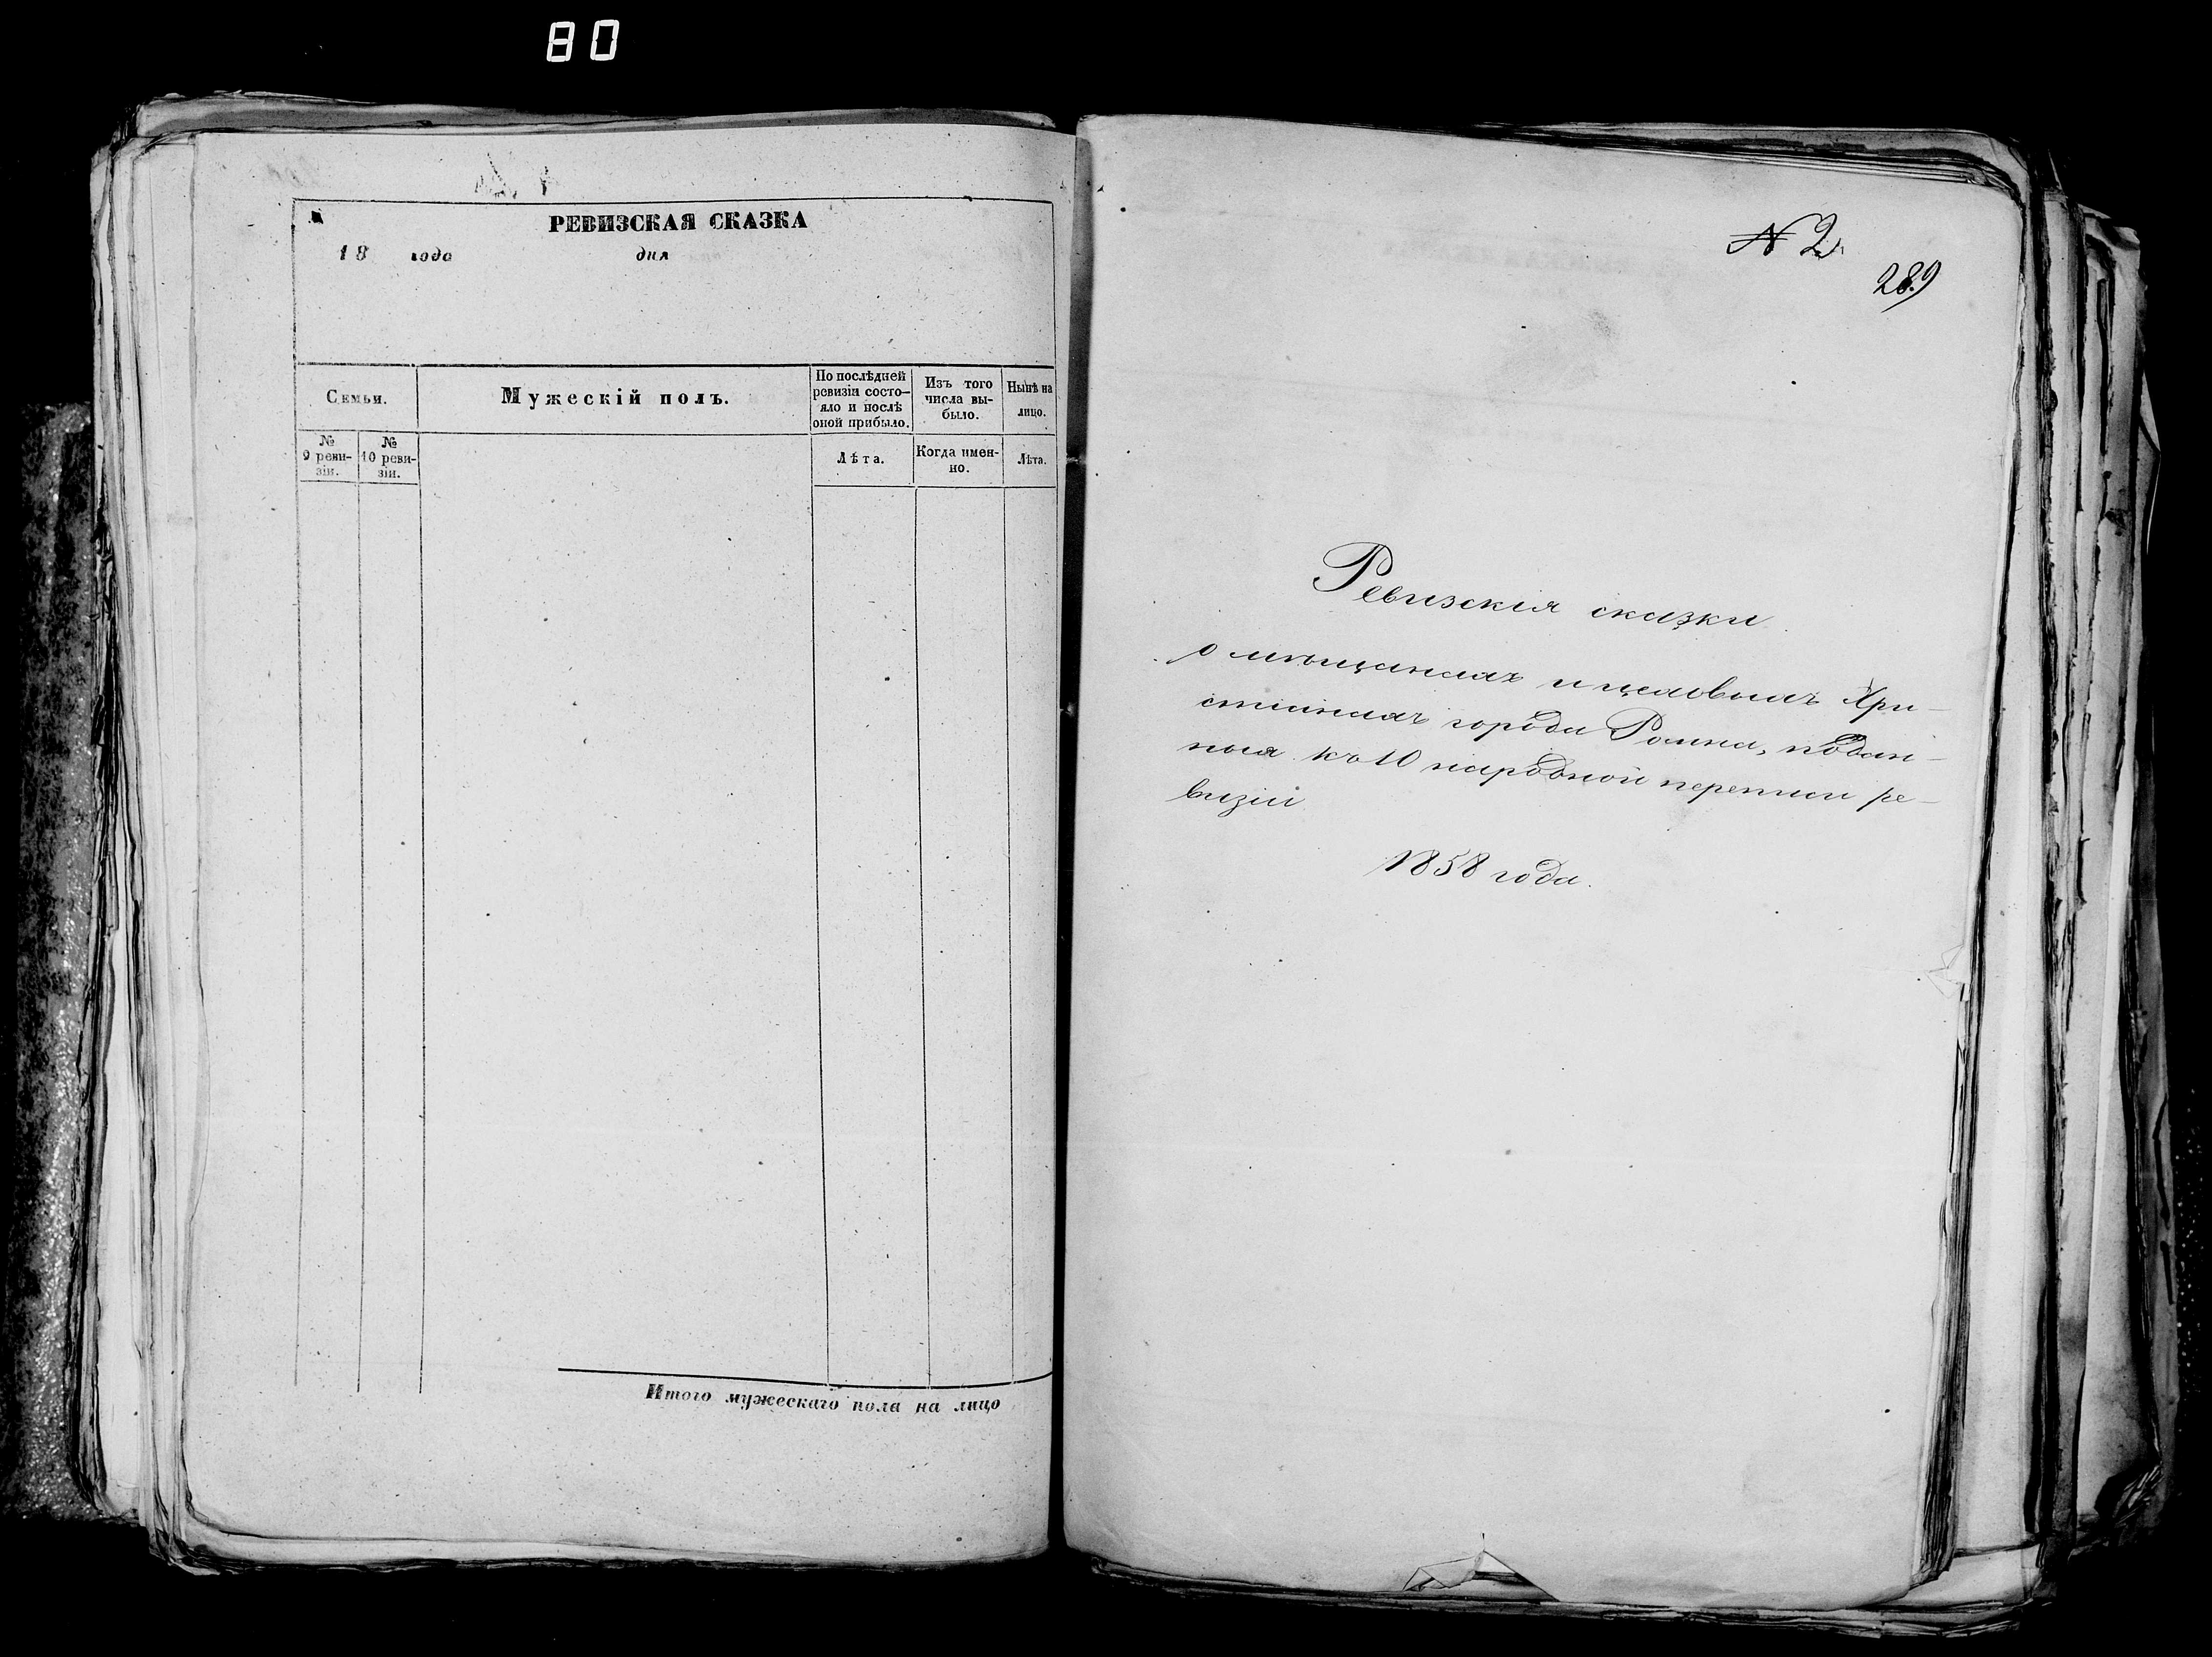 80
РЕВИЗСКАЯ СКАЗКА
18 года дня
Семьи.
Мужескій полъ.
По послѣдней
ревизіи состо-
яло и послѣ
оной прибыло.
Изъ того
числа вы-
было.
Нынѣ на
лицо.
№
9 реви-
зіи.
№
10 реви-
зіи.
Лѣта.
Когда имен-
но.
Лѣта.
Итого мужескаго пола на лицо
N 2
289
Ревизскія сказки
о мѣщанахъ и цеховыхъ Хри-
стіянахъ города Ромна, подан-
ныя къ 10 народной переписи ре-
визіи
1858 года.